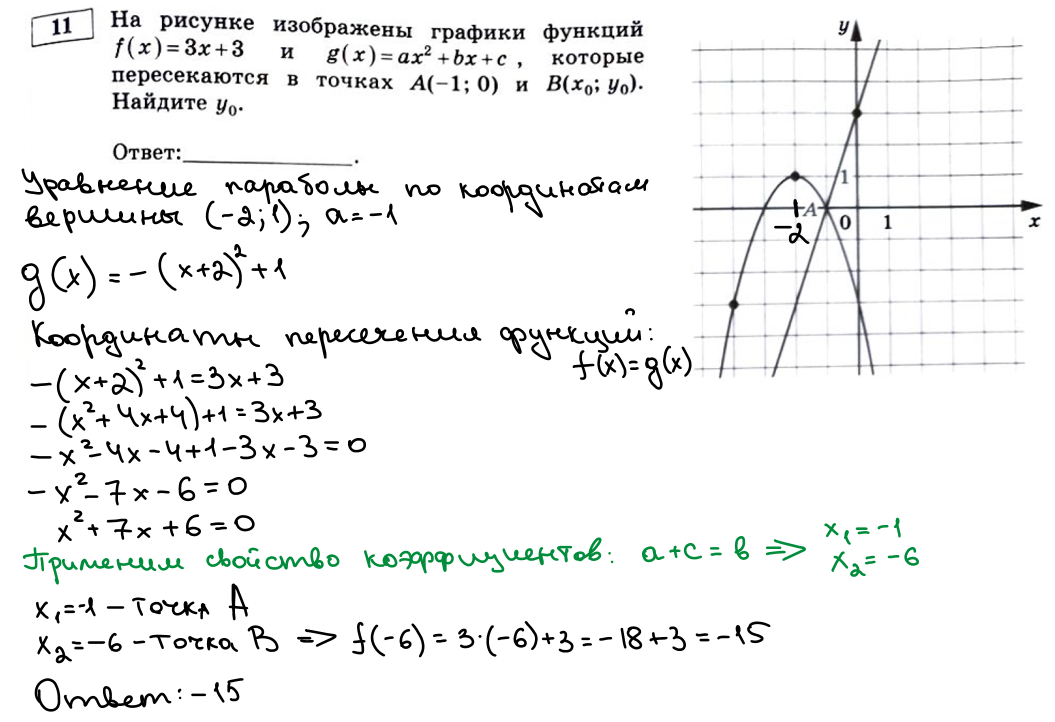 11
На рисунке изображены графики функций
f(x)=3x+3 и g(x)=ax²+bx+c, которые
пересекаются в точках A(−1; 0) и B(x₀; y₀).
Найдите y₀.
Ответ:_______________.
y
1
A
0
1
x
-2
Уравнение параболы по координатам
вершины (-2;1); a=-1
g(x)=-(x+2)²+1
Координаты пересечения функций:
f(x)=g(x)
-(x+2)²+1=3x+3
-(x²+4x+4)+1=3x+3
-x²-4x-4+1-3x-3=0
-x²-7x-6=0
x²+7x+6=0
Применим свойство коэффициентов: a+c=b => x₁=-1
x₂=-6
x₁=-1 - точка A
x₂=-6 - точка B => f(-6)=3·(-6)+3=-18+3=-15
Ответ: -15